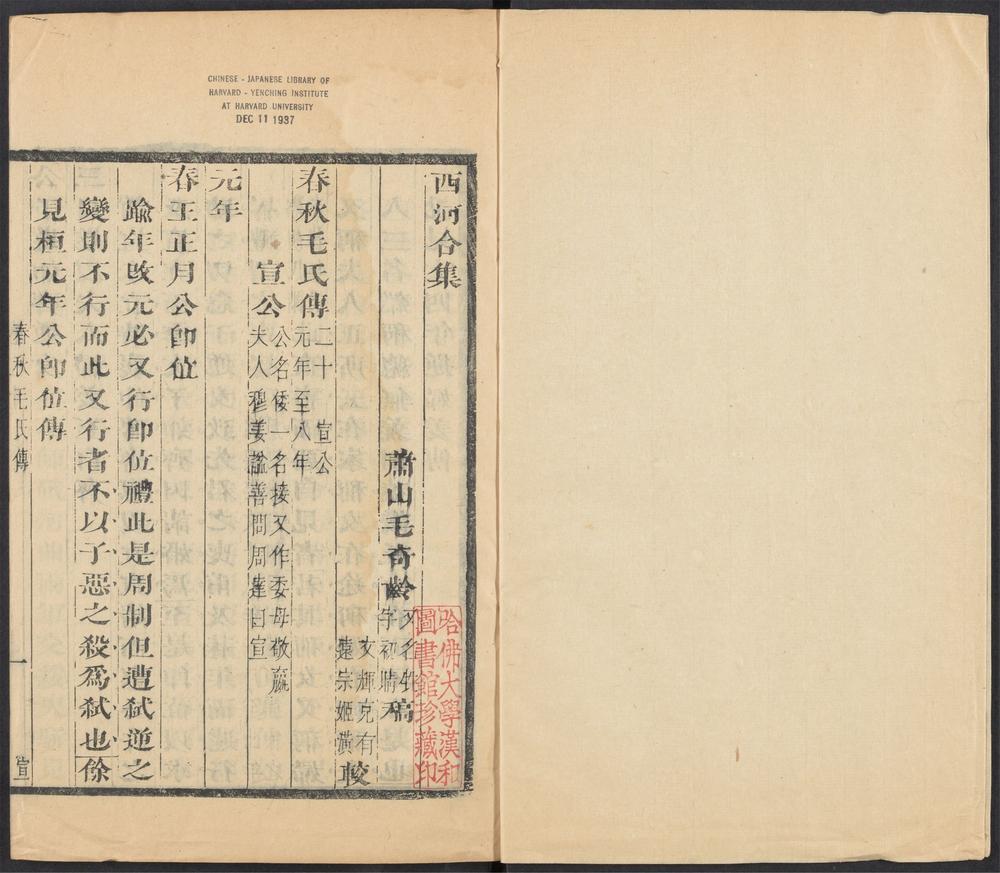 CHINESE - JAPANESE LIBRARY OF
HARVARD - YENCHING INSTITUTE
AT HARVARD UNIVERSITY
DEC 11 1937
西河合集
蕭山毛奇齡
又名甡
字初晴
稿
文輝克有
遠宗姬潢
較
春秋毛氏傳
二十 宣公
元年至八年
宣公
公名倭一名接又作委母敬嬴
夫人穆姜諡善問周達曰宣
元年
春王正月公卽位
踰年改元必又行卽位禮此是周制但遭弑逆之
變則不行而此又行者不以子惡之殺爲弑也餘
見桓元年公卽位傳
春秋毛氏傳
一
宣
哈佛大學漢和
圖書館珍藏印